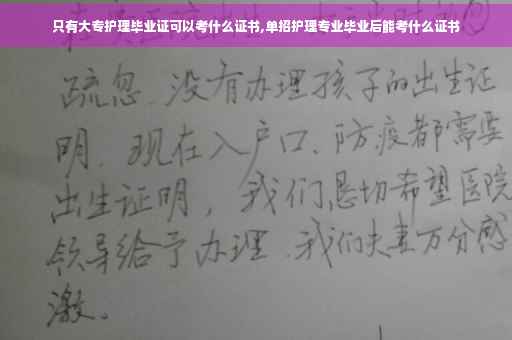 只有大专护理毕业证可以考什么证书,单招护理专业毕业后能考什么证书
疏忽、没有办理孩子的出生证
明、现在入户口、防疫都需要
出生证明，我们恳切希望医院
领导给予办理、我们夫妻万分感
激。